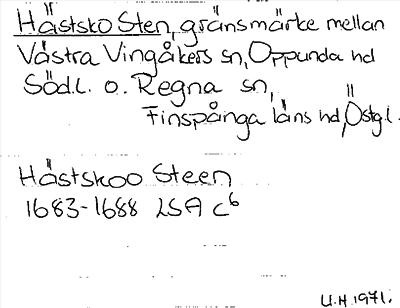 Hästsko Sten, gränsmärke mellan
Västra Vingåkers sn, Oppunda hd
Söd.l. o. Regna sn,
Finspånga läns hd, Östg.l.
Hästskoo Steen
1683-1688 LSA C6
U.H. 1971.